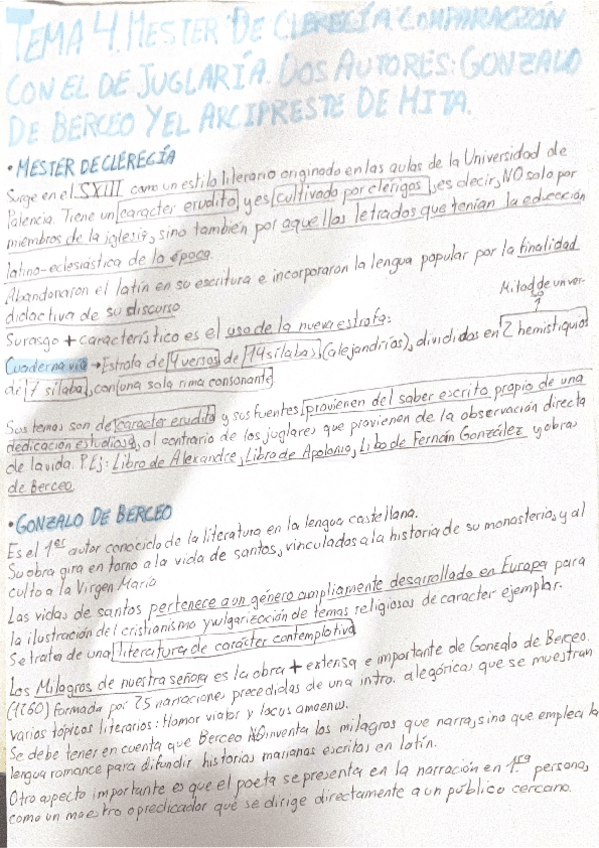 TEMA 4. MESTER DE CLERECÍA. COMPARACIÓN
CON EL DE JUGLARÍA. DOS AUTORES: GONZALO
DE BERCEO Y EL ARCIPRESTE DE HITA.
• MESTER DE CLERECÍA
Surge en el SXIII como un estilo literario originado en las aulas de la Universidad de
Palencia. Tiene un caracter erudito y es cultivado por clérigos, es decir, NO solo por
miembros de la iglesia, sino también por aquellos letrados que tenían la educación
latino-eclesiástica de la época.
Abandonaron el latín en su escritura e incorporaron la lengua popular por la finalidad
didactica de su discurso
Mitad de un ver-
Su rasgo + característico es el uso de la nueva estrofa:
Cuaderna vía → Estrofa de 4 versos de 14 sílabas (alejandrinos), divididos en 2 hemistiquios
de 7 sílabas, con una sola rima consonante
Sus temas son de caracter erudito y sus fuentes provienen del saber escrito propio de una
dedicación estudiosa, al contrario de los juglares que provienen de la observación directa
de la vida. P.Ej: Libro de Alexandre, Libro de Apolonio, Libo de Fernán González y obras
de Berceo
• GONZALO DE BERCEO
Es el 1er autor conocido de la literatura en la lengua castellana.
Su obra gira en torno a la vida de santos, vinculados a la historia de su monasterio, y al
culto a la Virgen María
Las vidas de santos pertenece a un género ampliamente desarrollado en Europa para
la ilustración del cristianismo y vulgarización de temas religiosos de caracter ejemplar.
Se trata de una literatura de carácter contemplativa
Los Milagros de nuestra señora es la obra + extensa e importante de Gonzalo de Berceo.
(1260) formada por 25 narraciones precedidas de una intro. alegórica, que se muestran
varios tópicos literarios: Homor viator y locus amoenus.
Se debe tener en cuenta que Berceo NO inventa los milagros que narra, sino que emplea la
lengua romance para difundir historias marianas escritas en latín.
Otro aspecto importante es que el poeta se presenta en la narración en 1era persona,
como un maestro o predicador que se dirige directamente a un público cercano.